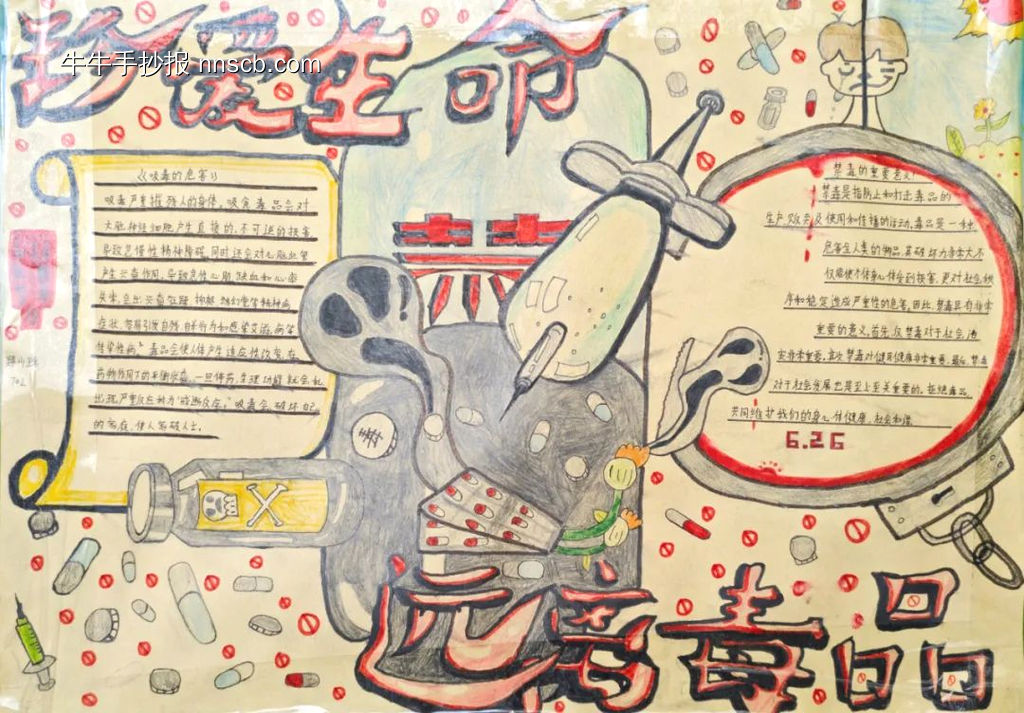 珍爱生命
牛牛手抄报 nnscb.com
《吸毒的危害》
吸毒严重摧残人的身体,吸食毒品会对
大脑神经细胞产生直接的、不可逆的损害
导致急慢性精神障碍,同时还会对心脏血管
产生次毒作用,导致急性心肌缺血和心律
失常,会出
症状,
传染性病。毒品会使人体产生适应性改变,在
药物作用下的平衡状态。一旦停药,生理功能就会紊乱
出现严重反应称为“戒断反应。”吸毒会破坏
702
毒
禁毒的重要意义
禁毒是指防止和打击毒品的
生产、贩卖及使用和传播的活动,毒品是一种
危害全人类的物品,其破坏力非常大,不
仅能使个体身心体会到损害,更对社会秩
序和稳定造成严重性的危害。因此,禁毒具有非常
重要的意义,首先,反禁毒对于社会治
安非常重要,其次,禁毒对健康非常重要。最后,禁毒
对于社会发展也是至上至关重要的。拒绝毒品,
共同维护我们的身心体健康、社会和谐。
6.26
远离毒品